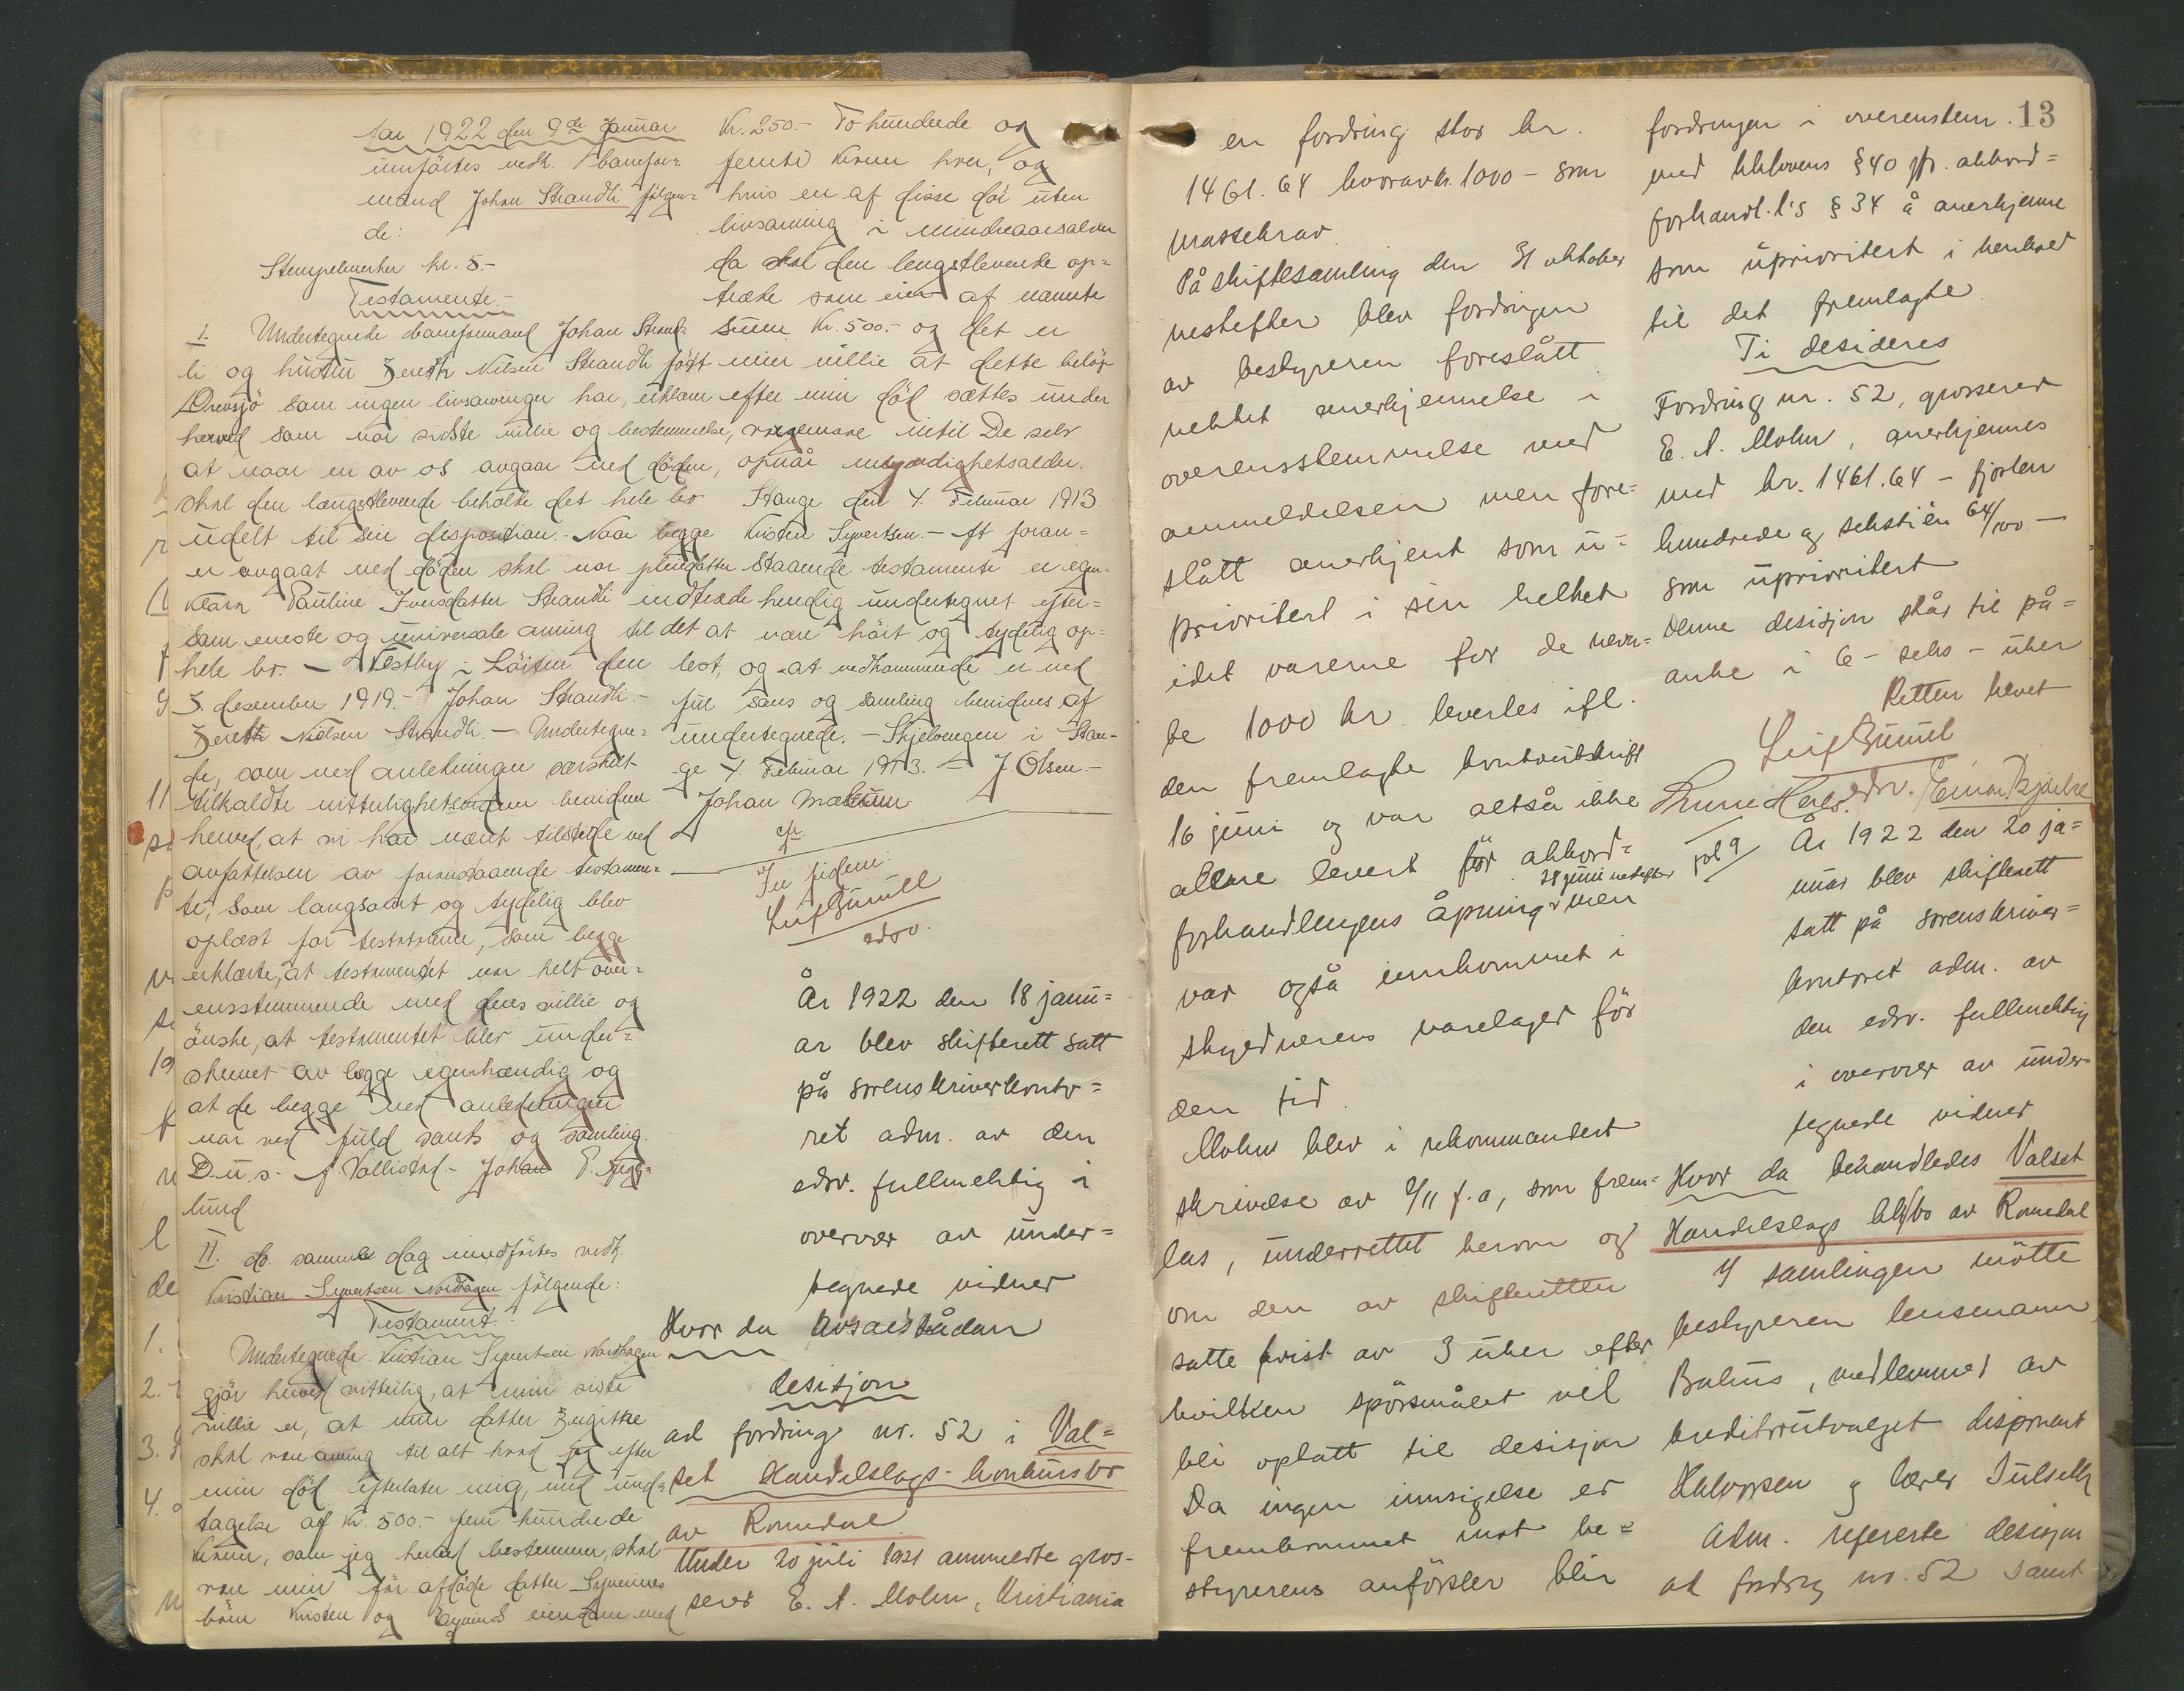 Aar 1922 den 9de Januar
innførtes vedk. banefor=
mand Johan Strandli følgen=
de:
Stempelmerker kr. 5.-
Testamente.-
1. Undertegnede baneformand Johan Strand=
li og hustru Nilsen Strandli født
som ingen livsarvinger har, erklærer
herved som vor sidste villie og bestemmelse,
at naar en av os avgaar ved døden,
skal den længstlevende beholde det hele bo
udelt til sin disposition.- Naar begge
er avgaat ved døden skal vor pleiedatter
Klara Pauline Iversdatter Strandli indtræde
som eneste og universale arving til det
hele bo. - Vestby i Løiten den
3. desember 1919.- Johan Strandli.-
Nilsen Strandli. - Undertegne=
de, som ved anledningen særskilt
tilkaldte vitterlighetsvidner bevidner
herved, at vi har været tilstede ved
avfattelsen av foranstaaende testamen=
te, som langsomt og tydelig blev
oplæst for testatorerne, som begge
erklærte, at testamentet var helt over=
ensstemmende med deres villie og
ønske, at testamentet blev under=
skrevet av begge egenhændig og
at de begge ved anledningen
var ved fuld sands og samling.
D.u.s. Johan P.
lund
II. do. samme dag inndførtes vedk.
Kristian Syvertsen Nordhagen følgende:
Testament.-
Undertegnede Kristian Syvertsen Nordhagen
gjør herved vitterlig, at min siste
villie er, at min datter
skal være arving til alt hvad jeg efter
min død efterlater mig, med und=
tagelse af Kr. 500.- fem hundrede
kroner, som jeg herved bestemmer, skal
være min før afdøde datter Syverines
børn Kristen og eiendom med
Kr. 250.- To hundrede og
femti kroner hver, og
hvis en af disse dør uten
livsarving i mindreaarsalder
da skal den lengstlevende op=
træde som eier af nævnte
sum Kr. 500.- og det er
min villie at dette beløp
efter min død sættes under
intil De selv
opnår myndighetsalder.
Stange den 4. Februar 1913.
Kristen Syvertsen.- At foran=
staaende testamente er egen=
hendig undertegnet efter=
at være hört og tydelig op=
lest, og at vedkommende er ved
full sans og samling bevidnes af
undertegnede. - Skjelvangen i Stan=
ge 4. Februar 1913. - J. Olsen.-
Johan
In fidem:
edsv.
År 1922 den 18 janu=
ar blev skifterett satt
på sorenskriverkonto=
ret adm. av den
edsv. fullmektig i
overvær av under=
tegnede vidner
Hvor da avsaes sådan
desisjon
ad fordring nr. 52 i Val=
set Handelslags konkursbo
av Romedal
Under 20 juli 1921 anmeldte gros-
serer E. A. Mohn, Kristiania
en fordring stor kr.
1461.64 hvorav kr. 1000 - som
massekrav.
På skiftesamling den 31 oktober
nestefter blev fordringen
av bestyreren foreslått
nektet anerkjennelse i
overensstemmelse med
anmeldelsen men fore=
slått anerkjent som u=
prioritert i sin helhet
idet varerne for de nevn=
te 1000 kr. levertes ifl.
den fremlagte kontoutskrift
16 juni og var altså ikke
allene levert før akkord=
28 juni nestefter
forhandlingens åpning men
var også innkommet i
skyldnerens varelager før
den tid.
Mohn blev i rekommandert
skrivelse av 9/11 f.a, som frem=
las, underrettet herom og
om den av skifteretten
satte frist av 3 uker efter
hvilken spørsmålet vil
bli optatt til desisjon
Da ingen innsigelse er
fremkommet mot be=
styrerens anførsler blir
13
fordringen i overenstem.
med kklovens § 40 jfr. akkord=
forhandl.l's § 34 å anerkjenne
som uprioritert i henhold
til det fremlagte.
Ti desideres
Fordring nr. 52, grosserer
E. A. Mohn, anerkjennes
med kr. 1461.64 - fjorten
hundrede og sekstién 64/100 -
som uprioritert
Denne desisjon står til på=
anke i 6 - seks - uker
Retten hevet
edsv. Einar Bjerke
fol 9
År 1922 den 20 ja=
nuar blev skifterett
satt på sorenskriver=
kontoret adm. av
den edsv. fullmektig
i overvær av under=
tegnede vidner
Hvor da behandledes Valset
Handelslags kk/bo av Romedal
I samlingen møtte
bestyreren lensmann
medlemmer av
kreditorutvalget disponent
Halvorsen og lærer
Adm. refererte desisjon
ad fordring nr. 52 samt